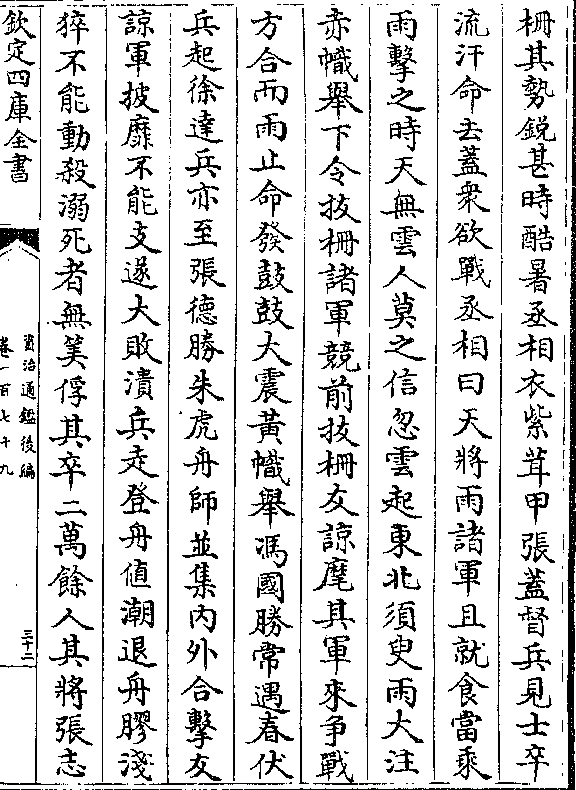 柵其勢銳甚時酷暑丞相衣紫茸甲張蓋督兵見士卒
流汗命去蓋衆欲戰丞相曰天將雨諸軍且就食當乘
雨擊之時天無雲人莫之信忽雲起東北須臾雨大注
赤幟舉下令拔柵諸軍競前拔柵友諒麾其軍來爭戰
方合而雨止命發鼓鼓大震黃幟舉馮國勝常遇春伏
兵起徐達兵亦至張德勝朱虎舟師並集內外合擊友
諒軍披靡不能支遂大敗潰兵走登舟值潮退舟膠淺
猝不能動殺溺死者無筭俘其卒二萬餘人其將張志
欽定四庫全書
資治通鑑後編
卷一百七十九
三十二